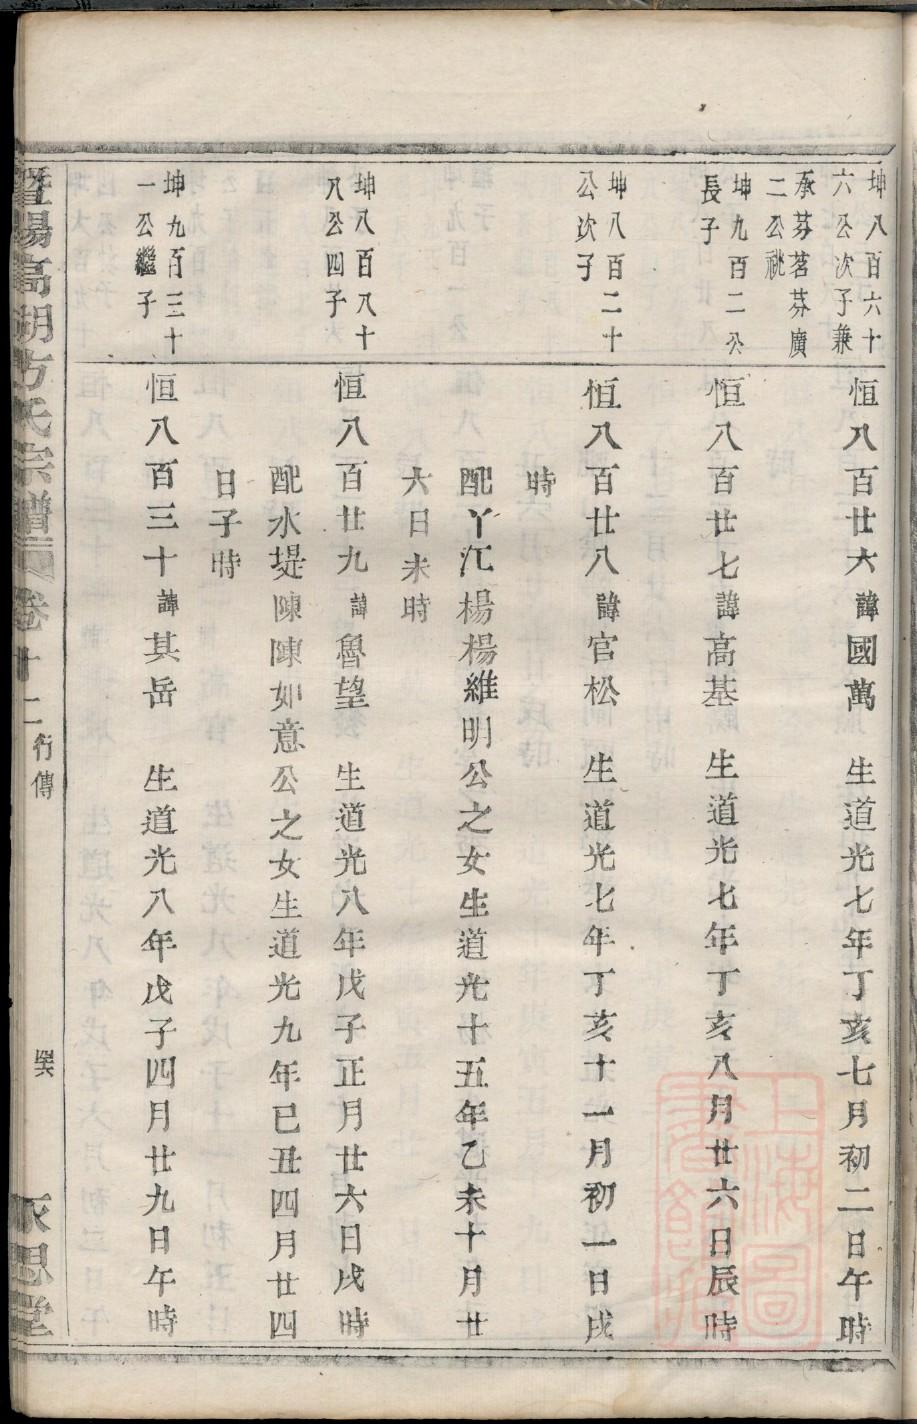 坤八百六十
六公次子兼
承芬茗芬廣
二公祧
恒八百廿六諱國萬 生道光七年丁亥七月初二日午時
坤九百二公
長子
恒八百廿七諱高基 生道光七年丁亥八月廿六日辰時
坤八百二十
公次子
恒八百廿八諱官松 生道光七年丁亥十一月初一日戌
時
配丫江楊楊維明公之女生道光十五年乙未十月廿
六日未時
坤八百八十
八公四子
恒八百廿九諱魯望 生道光八年戊子正月廿六日戌時
配水堤陳陳如意公之女生道光九年已丑四月廿四
日子時
坤九百三十
一公繼子
恒八百三十諱其岳 生道光八年戊子四月廿九日午時
暨陽高湖方氏宗譜 卷十二 行傳
永思堂
上海圖
書館藏